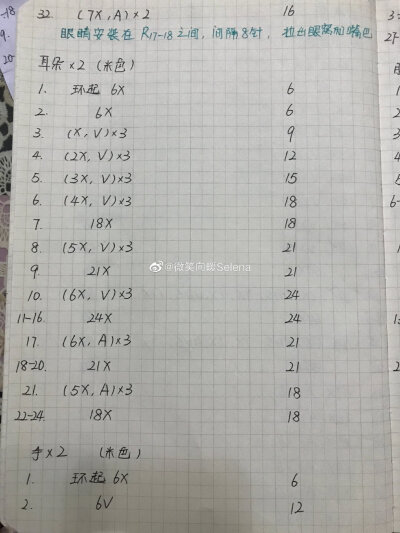 -18
9.
20-
32. (7X, A) × 2 16
眼睛安装在 R17-18 之间, 间隔8针, 拉出眼窝和嘴巴
耳朵 × 2 (米色)
1. 环起 6X 6
2. 6X 6
3. (X, V) × 3 9
4. (2X, V) × 3 12
5. (3X, V) × 3 15
6. (4X, V) × 3 18
7. 18X 18
8. (5X, V) × 3 21
9. 21X 21
10. (6X, V) × 3 24
11-16. 24X 24
17. (6X, A) × 3 21
18-20. 21X 21
21. (5X, A) × 3 18
22-24. 18X 18
手 × 2 (米色)
1. 环起 6X 6
2. 6V 12
@微笑向暖Selena